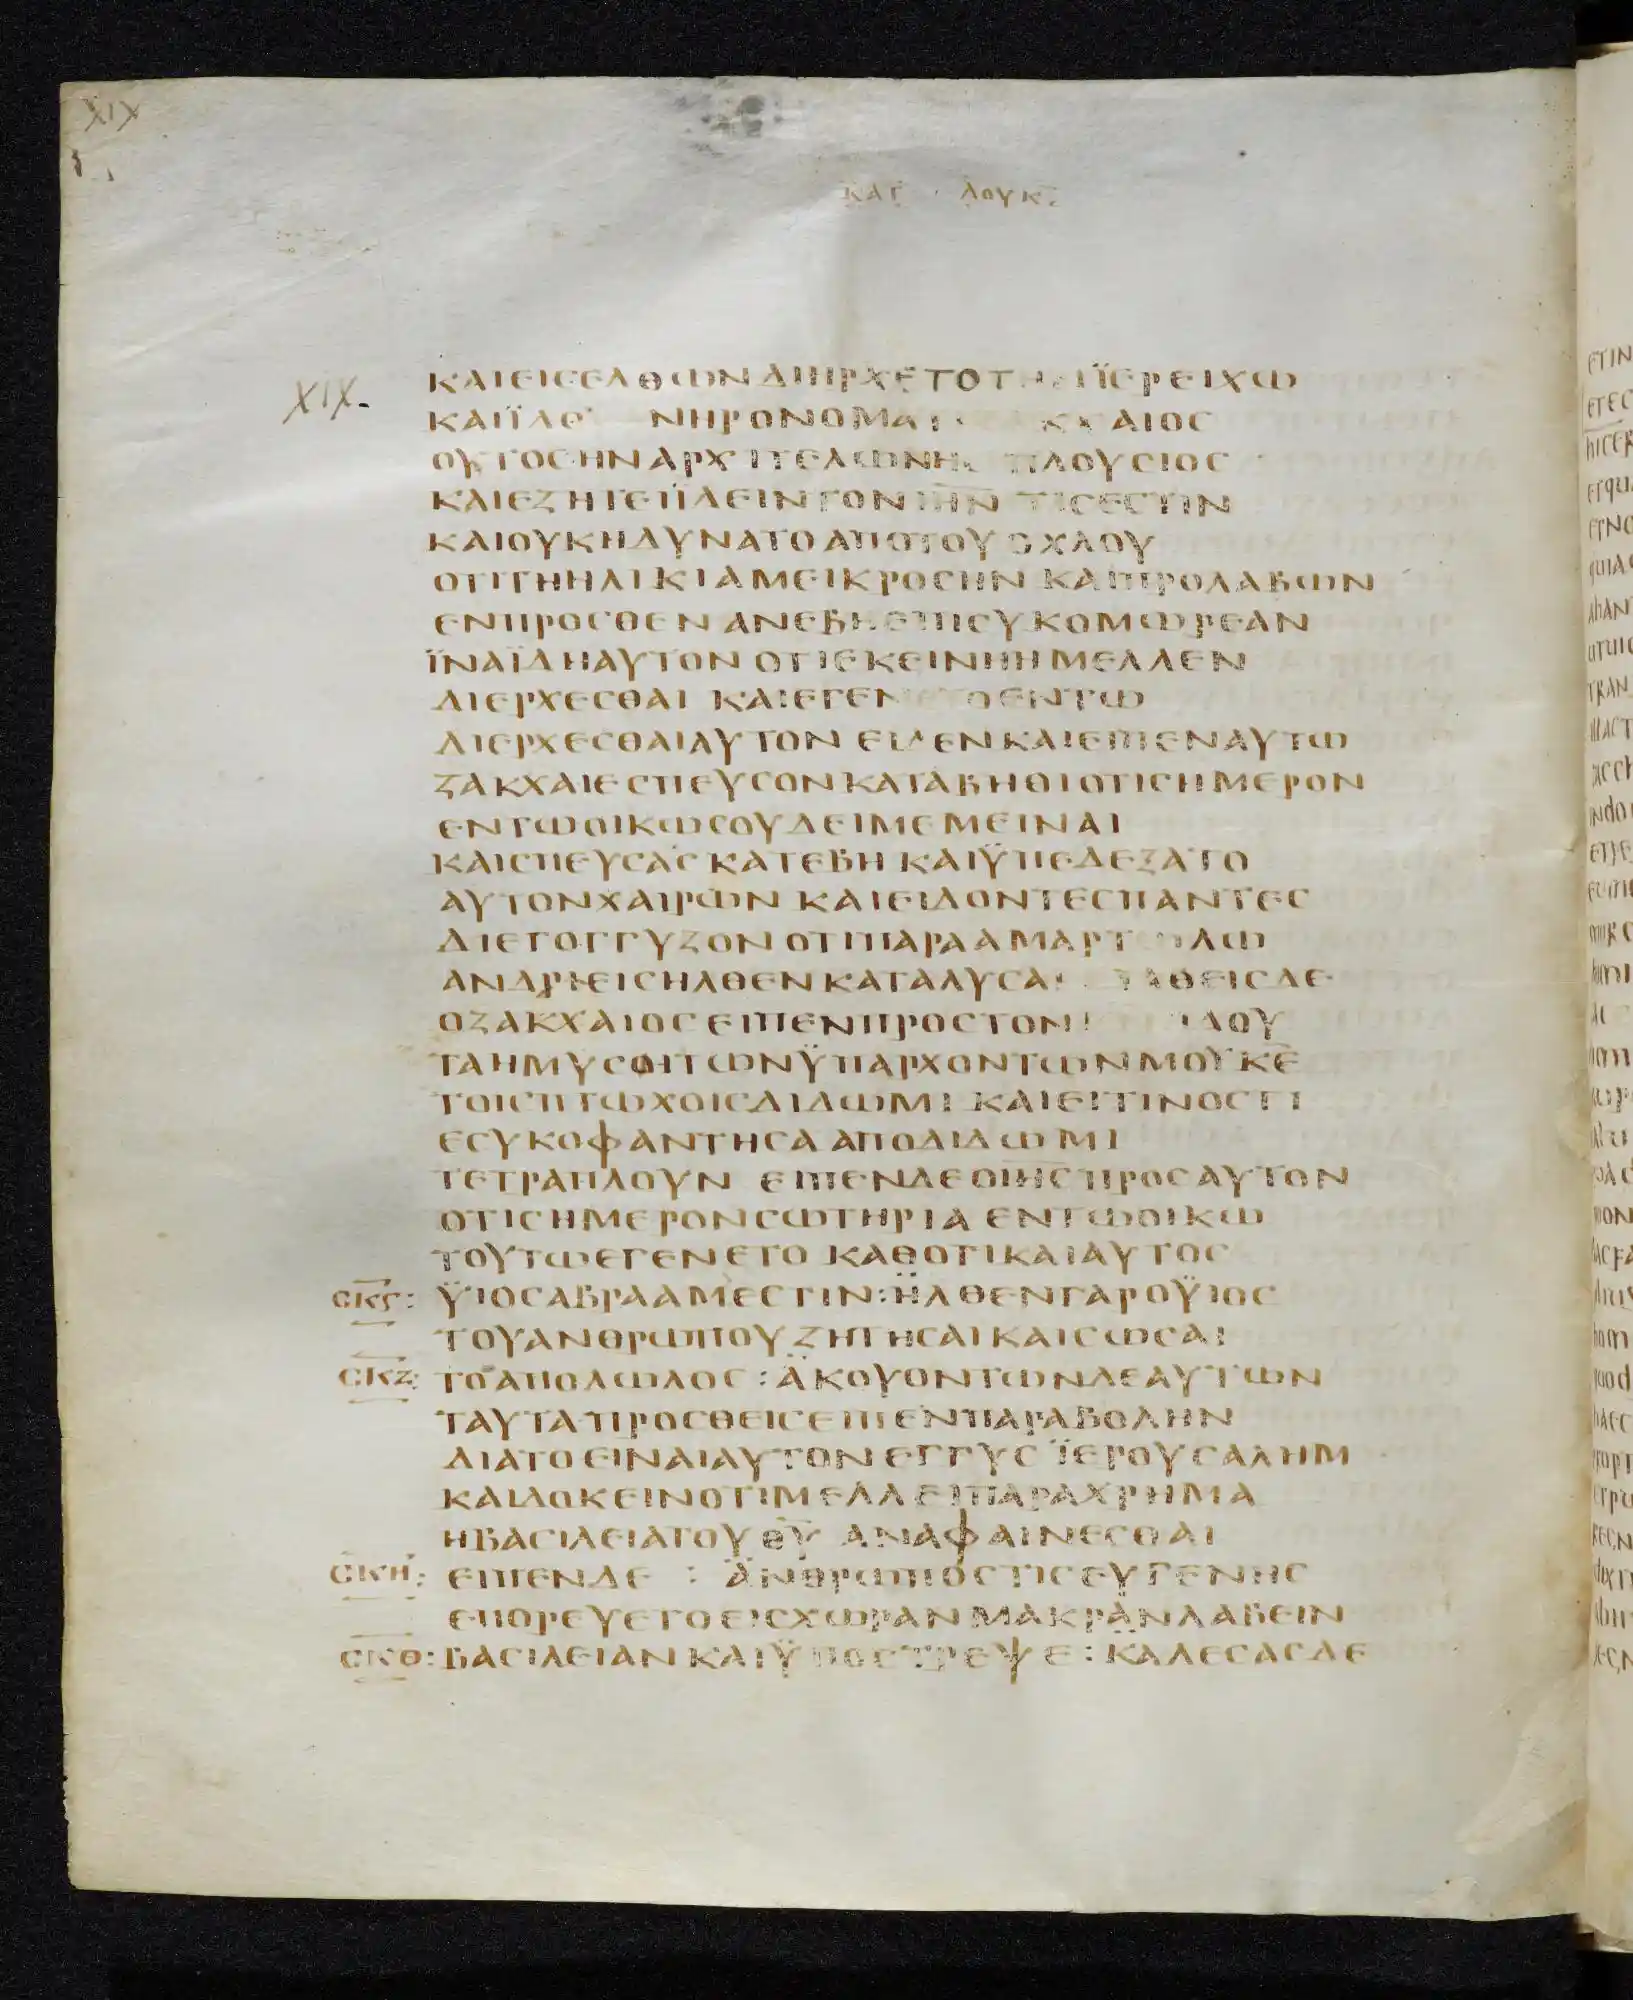 XIX
ΚΑΤ · ΛΟΥΚ:
XIX-
ΚΑΙΕΙϹΕΛΘΩΝΔΙΗΡΧΕΤΟΤΗΝΪΕΡΕΙΧΩ
ΚΑΙΪΔΟ ΝΗΡΟΝΟΜΑΤΙ ΑΙΟϹ
ΟΥΤΟϹΗΝΑΡΧΙΤΕΛΩΝΗϹ ΠΛΟΥϹΙΟϹ
ΚΑΙΕΖΗΤΕΙΪΔΕΙΝΤΟΝΙΗΝ ΤΙϹΕϹΤΙΝ
ΚΑΙΟΥΚΗΔΥΝΑΤΟΑΠΟΤΟΥΟΧΛΟΥ
ΟΤΙΤΗΗΛΙΚΙΑΜΕΙΚΡΟϹΗΝ ΚΑΙΠΡΟΛΑΒΩΝ
ΕΝΠΡΟϹΘΕΝΑΝΕΒΗΕΠΙϹΥΚΟΜΩΡΕΑΝ
ΪΝΑΪΔΗΑΥΤΟΝ ΟΤΙΕΚΕΙΝΗΗΜΕΛΛΕΝ
ΔΙΕΡΧΕϹΘΑΙ ΚΑΙΕΓΕΝΕΤΟΕΝΤΩ
ΔΙΕΡΧΕϹΘΑΙΑΥΤΟΝ ΕΙΔΕΝΚΑΙΕΙΠΕΝΑΥΤΩ
ΖΑΚΧΑΙΕϹΠΕΥϹΟΝΚΑΤΑΒΗΘΙΟΤΙϹΗΜΕΡΟΝ
ΕΝΤΩΟΙΚΩϹΟΥΔΕΙΜΕΜΕΙΝΑΙ
ΚΑΙϹΠΕΥϹΑϹ ΚΑΤΕΒΗ ΚΑΙΫΠΕΔΕΞΑΤΟ
ΑΥΤΟΝΧΑΙΡΩΝ ΚΑΙΕΙΔΟΝΤΕϹΠΑΝΤΕϹ
ΔΙΕΓΟΓΓΥΖΟΝ ΟΤΙΠΑΡΑΑΜΑΡΤΩΛΩ
ΑΝΔΡΙΕΙϹΗΛΘΕΝΚΑΤΑΛΥϹΑΙ ϹΤΑΘΕΙϹΔΕ
ΟΖΑΚΧΑΙΟϹΕΙΠΕΝΠΡΟϹΤΟΝ ΙΔΟΥ
ΤΑΗΜΥϹΟΙΤΩΝΫΠΑΡΧΟΝΤΩΝΜΟΥΚΕ
ΤΟΙϹΠΤΩΧΟΙϹΔΙΔΩΜΙ ΚΑΙΕΙΤΙΝΟϹΤΙ
ΕϹΥΚΟΦΑΝΤΗϹΑ ΑΠΟΔΙΔΩΜΙ
ΤΕΤΡΑΠΛΟΥΝ ΕΙΠΕΝΔΕΟΙΗϹΠΡΟϹΑΥΤΟΝ
ΟΤΙϹΗΜΕΡΟΝϹΩΤΗΡΙΑ ΕΝΤΩΟΙΚΩ
ΤΟΥΤΩΕΓΕΝΕΤΟ ΚΑΘΟΤΙΚΑΙΑΥΤΟϹ
ϹΚϚ: ΫΙΟϹΑΒΡΑΑΜΕϹΤΙΝ:ΗΛΘΕΝΓΑΡΟΫΙΟϹ
ΤΟΥΑΝΘΡΩΠΟΥΖΗΤΗϹΑΙΚΑΙϹΩϹΑΙ
ϹΚΖ: ΤΟΑΠΟΛΩΛΟϹ:ΑΚΟΥΟΝΤΩΝΔΕΑΥΤΩΝ
ΤΑΥΤΑΠΡΟϹΘΕΙϹΕΙΠΕΝΠΑΡΑΒΟΛΗΝ
ΔΙΑΤΟΕΙΝΑΙΑΥΤΟΝΕΓΓΥϹ ΪΕΡΟΥϹΑΛΗΜ
ΚΑΙΔΟΚΕΙΝΟΤΙΜΕΛΛΕΙΠΑΡΑΧΡΗΜΑ
ΗΒΑϹΙΛΕΙΑΤΟΥΘΥ ΑΝΑΦΑΙΝΕϹΘΑΙ
ϹΚΗ: ΕΙΠΕΝΔΕ : ΑΝΘΡΩΠΟϹΤΙϹΕΥΓΕΝΗϹ
ΕΠΟΡΕΥΕΤΟΕΙϹΧΩΡΑΝΜΑΚΡΑΝΛΑΒΕΙΝ
ϹΚΘ: ΒΑϹΙΛΕΙΑΝΚΑΙΫΠΟϹΤΡΕΨΕ:ΚΑΛΕϹΑϹΔΕ